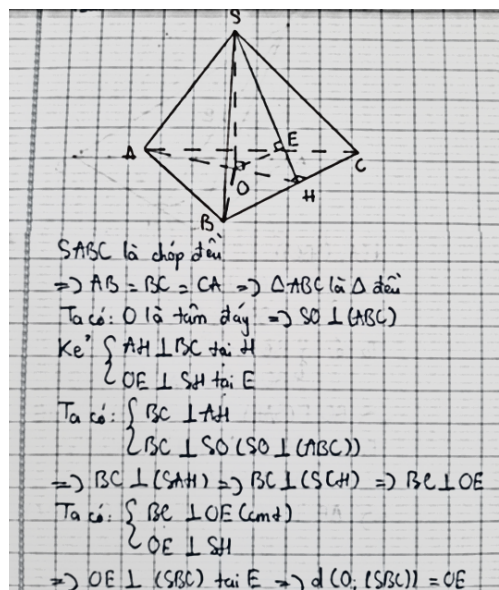 S
A
E
C
O
H
B
SABC là chóp đều
=> AB = BC = CA => ΔABC là Δ đều
Ta có: O là tâm đáy => SO ⊥ (ABC)
Kẻ { AH ⊥ BC tại H
OE ⊥ SH tại E
Ta có: { BC ⊥ AH
BC ⊥ SO (SO ⊥ (ABC))
=> BC ⊥ (SAH) => BC ⊥ (SCH) => BC ⊥ OE
Ta có: { BC ⊥ OE (cmt)
OE ⊥ SH
=> OE ⊥ (SBC) tại E => d(O; (SBC)) = OE